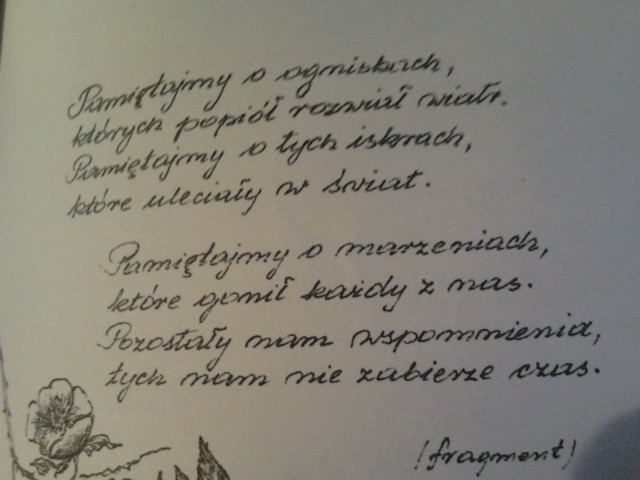 Pamiętajmy o ogniskach,
których popiół rozwiał wiatr.
Pamiętajmy o tych iskrach,
które uleciały w świat.
Pamiętajmy o marzeniach,
które gonił każdy z nas.
Pozostały nam wspomnienia,
tych nam nie zabierze czas.
(fragment)